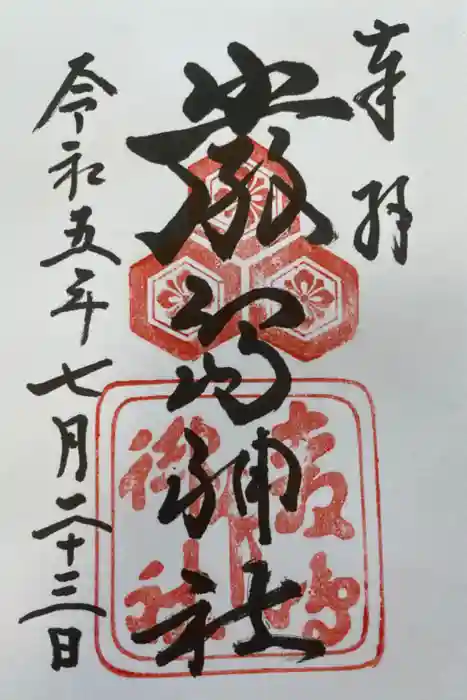 奉拝
嚴島神社
令和五年七月二十三日